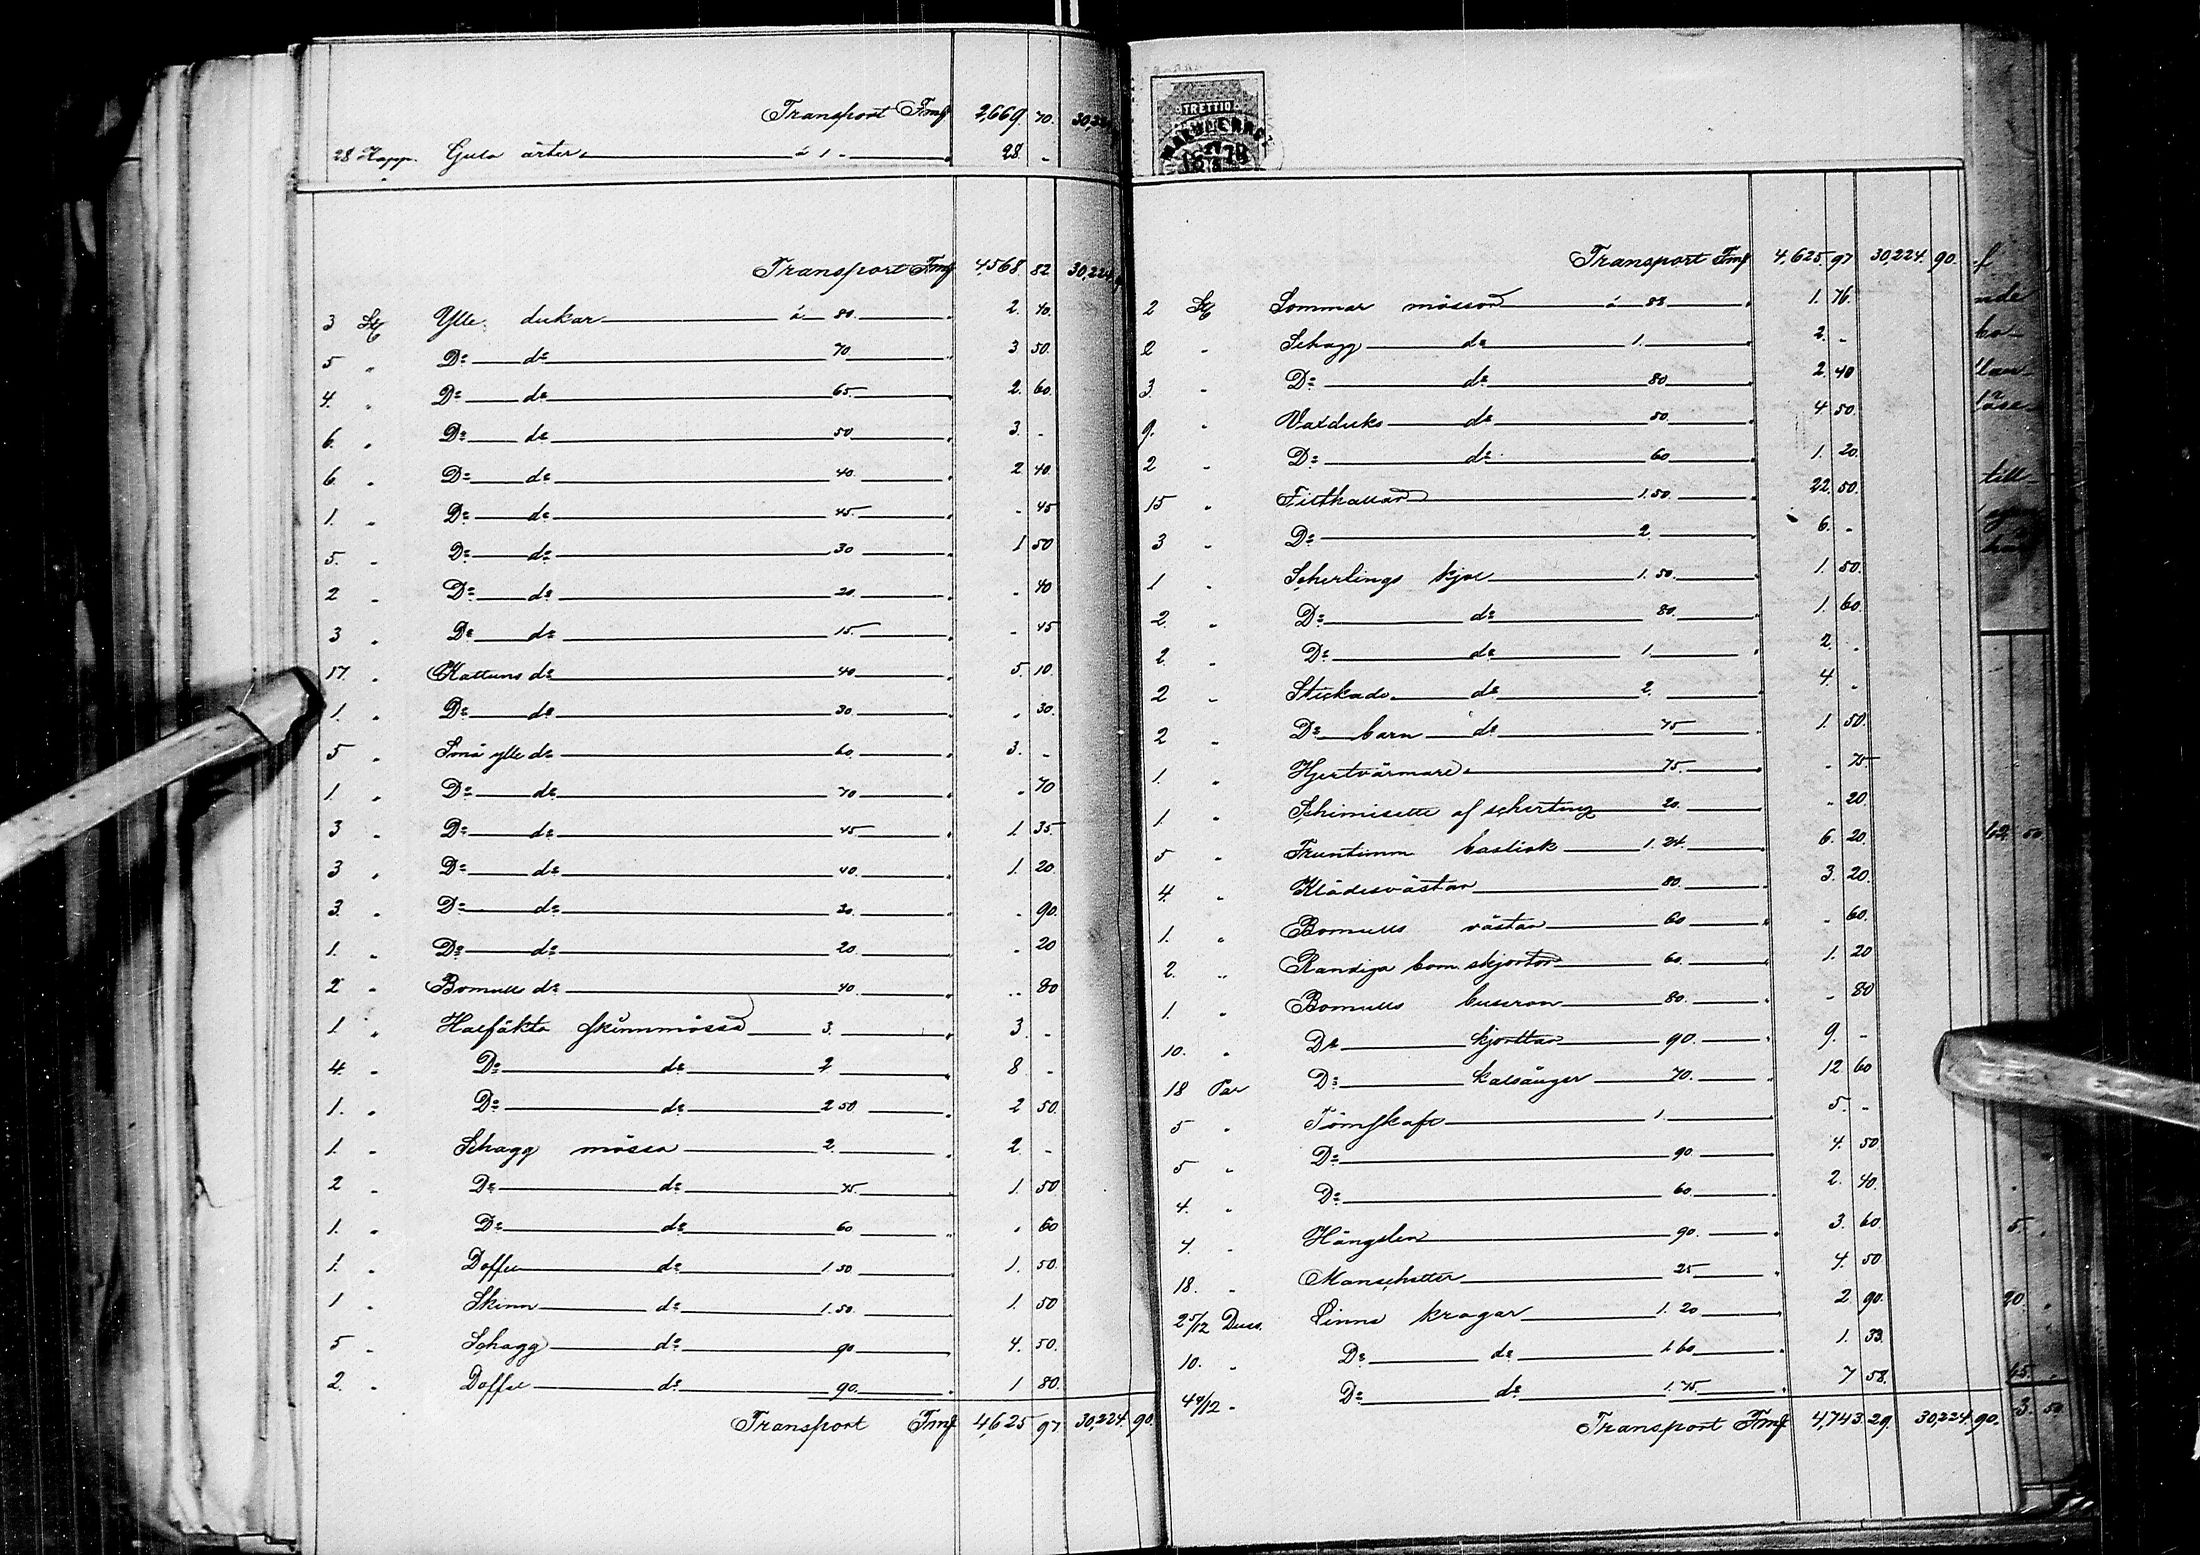 Transport Fmk 2,669. 70. 30,224
28 Kapp. Gula ärter à 1 - 28. -
Transport Fmk 4568 82 30,224
3 St Ylle dukar à 80. 2. 40.
5 " Do do 70. 3. 50.
4. " Do do 65. 2. 60.
6. " Do do 50 3. -
6. " Do do 40. 2 40
1. " Do do 45. - 45
5. " Do do 30 1 50
2 " Do do 20. - 40
3 " Do do 15. - 45
17. " Kattuns do 40 5. 10.
1. " Do do 30. " 30.
5 " Små ylle do 60. 3. -
1. " Do do 70 " 70
3 " Do do 45 1 35.
3 " Do do 40. 1. 20.
3. " Do do 30. - 90.
1. " Do do 20 - 20
2 " Bomulls do 40. " 80
1 " Halfäkta skinnmössa 3. 3. -
4. " Do do 2 8 -
1. " Do do 2 50 2 50.
1. " Schagg mössa 2. 2. -
2 " Do do 75. 1. 50
1. " Do do 60 " 60
1. " Doffel do 1.50 1. 50.
1 " Skinn do 1.50. 1. 50
5 " Schagg do 90 4. 50.
2. " Doffel do 90. 1 80.
Transport Fmk 4,625 97. 30,224. 90.
TRETTIO
Transport Fmk 4,625. 97 30,224. 90.
2 St Sommar mössor à 88 1. 76.
2 " Schagg do 1. 2. -
3 " Do do 80 2. 40
9. " Vaxduks do 50. 4 50.
2 " Do do 60 1. 20.
15 " Filthattar 1.50. 22. 50.
3 " Do 2. 6. -
1 " Schertings kjol 1.50. 1. 50.
2 " Do do 80. 1. 60.
2. " Do do 1. 2. "
2 " Stickade do 2. 4. "
2 " Do barn do 75 1. 50.
1. " Hjertvärmare 75. - 75.
1 " Schimisette af scherting 20. " 20.
5 " Fruntimm baslisk 1.24. 6. 20.
4. " Klädesvästar 80. 3. 20.
1. " Bomulls västar 60 - 60.
2. " Randiga bom. skjortor 60. 1. 20
1. " Bomulls busseron 80. - 80
10. " Do skjorttor 90. 9. -
18 Par Do kalsånger 70. 12 60
5 " Tömskaft 1. 5. -
5 " Do 90. 4. 50
4. " Do 60. 2. 40.
4. " Hängslen 90. 3. 60
18. " Manschetter 25 4. 50
2 5/12 Duss. Linne kragar 1.20 2 90.
10. " Do do 1.60 1. 33.
4 4/12 " Do do 1.75. 7 58.
Transport Fmk 4,743. 29. 30,224. 90.
till
62. 50
5. "
20 "
45.
3. 50